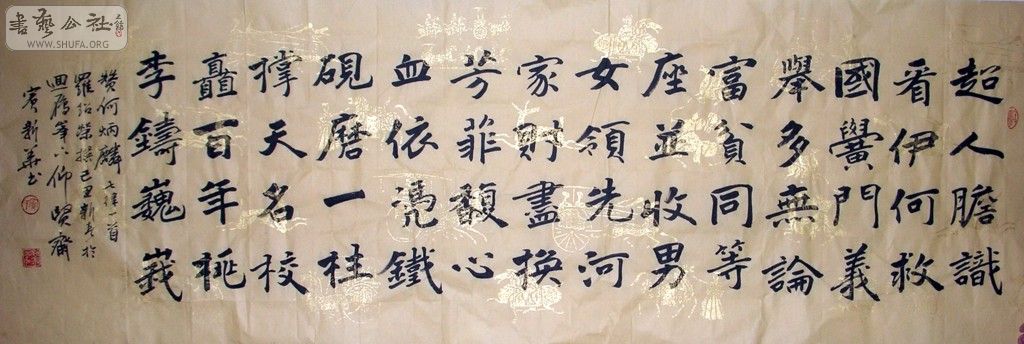 超人膽識
看伊何救
國黌門義
舉多無論
富貧同等
座並收男
女領先河
家財盡換
芳菲馥心
血依凴鐵
硯磨一柱
撑天名校
矗百年桃
李鑄巍峩
贊何炳麟七律一首
羅紹榮撰己丑新春於
峯下仰賢齋
新華书
書藝公社
WWW.SHUFA.ORG